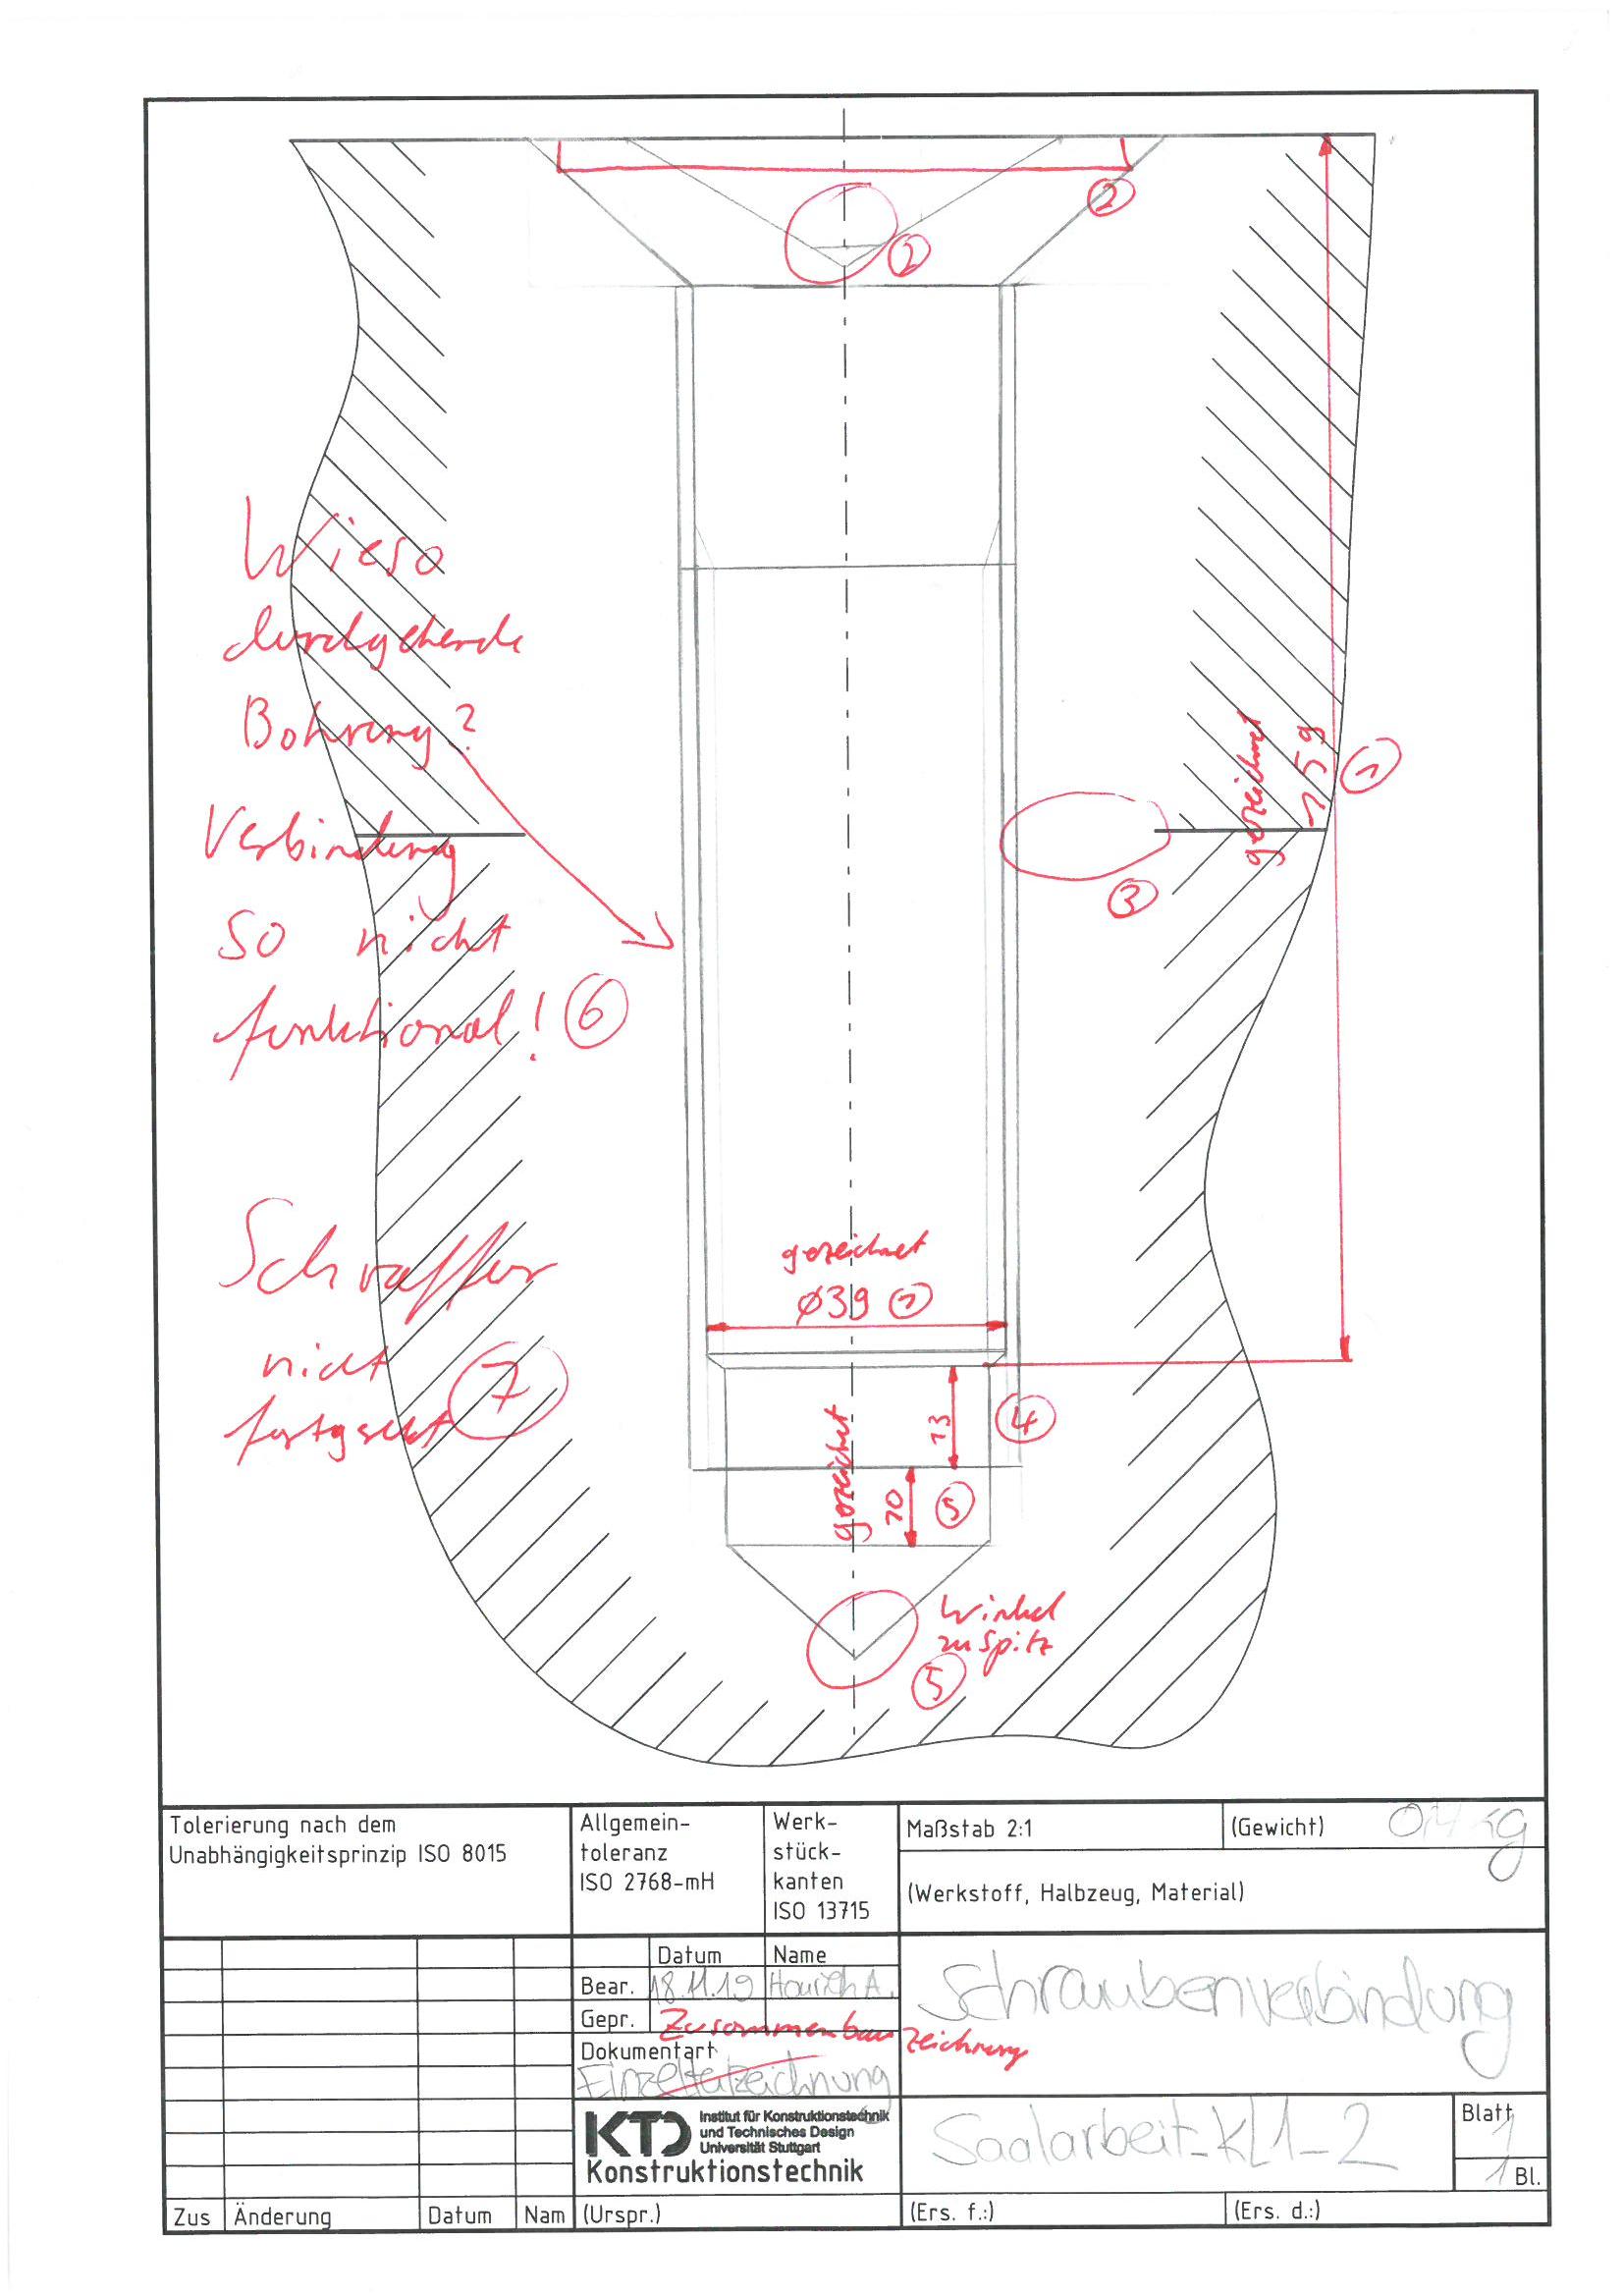 ②
②
Wieso
durchgehende
Bohrung?
gezeichnet
159
①
Verbindung
③
so nicht
funktional! ⑥
gezeichnet
Ø39 ①
Schraffur
nicht ⑦
fortgesetzt
gezeichnet
13 ④
10 ⑤
Winkel
zu spitz
⑤
Tolerierung nach dem
Unabhängigkeitsprinzip ISO 8015
Allgemein-
toleranz
ISO 2768-mH
Werk-
stück-
kanten
ISO 13715
Maßstab 2:1
(Gewicht)
(Werkstoff, Halbzeug, Material)
Datum Name
Bear. 18.11.19 A.
Gepr.
Zusammenbauzeichnung
Dokumentart
Einzelteilzeichnung
Schraubenverbindung
KTD Institut für Konstruktionstechnik
und Technisches Design
Universität Stuttgart
Konstruktionstechnik
Saalarbeit_KL1_2
Blatt
1
1 Bl.
Zus Änderung Datum Nam (Urspr.) (Ers. f.:) (Ers. d.:)